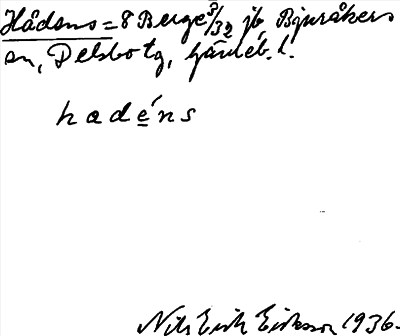 Hådens = 8 Berge 3/32 jb, Bjuråkers
sn, Delsbo tg, Gävleb. l.
hadéns
Nils Erik Eriksson 1936.